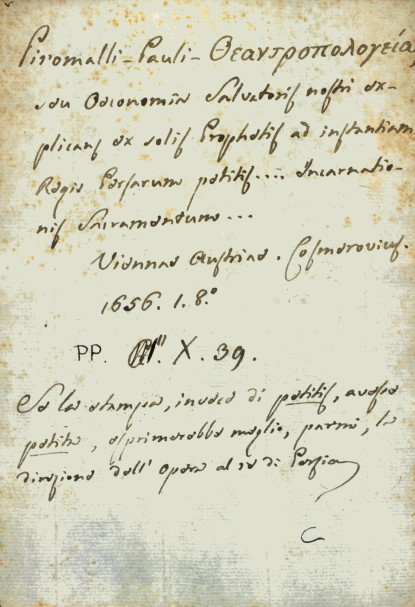 Piromalli - Pauli - Θεαντροπολογεία,
seu Oeconomia Salvatoris nostri ex-
plicans ex solis Prophetis ad instantiam
Regis Persarum petitis.... Incarnatio-
nis Sacramentum...
Viennae Austriae. Cosmerovius.
1656. 1. 8.º
PP. X. 39.
Se la stampa, invece di petitis, avesse
petita, esprimerebbe meglio, parmi, la
direzione dell' Opera al re di Persia
C